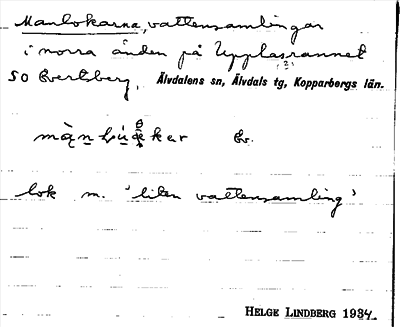 Manlokarna, vattensamlingar
i norra änden på Upplasrannet
SO Evertsberg, Älvdalens sn, Älvdals tg, Kopparbergs län.
Ev.
lok m. 'liten vattensamling'
HELGE LINDBERG 1934